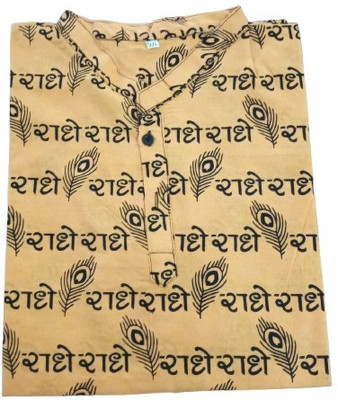 राधे राधे राधे
राधे राधे
राधे राधे राधे
राधे राधे
राधे राधे राधे
राधे राधे
राधे राधे राधे
राधे राधे
राधे राधे राधे